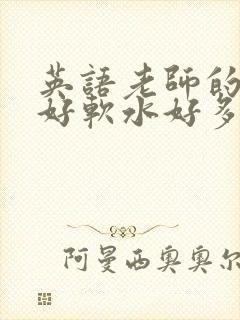 英語老師的
好軟水好多
阿曼西奧奧尔